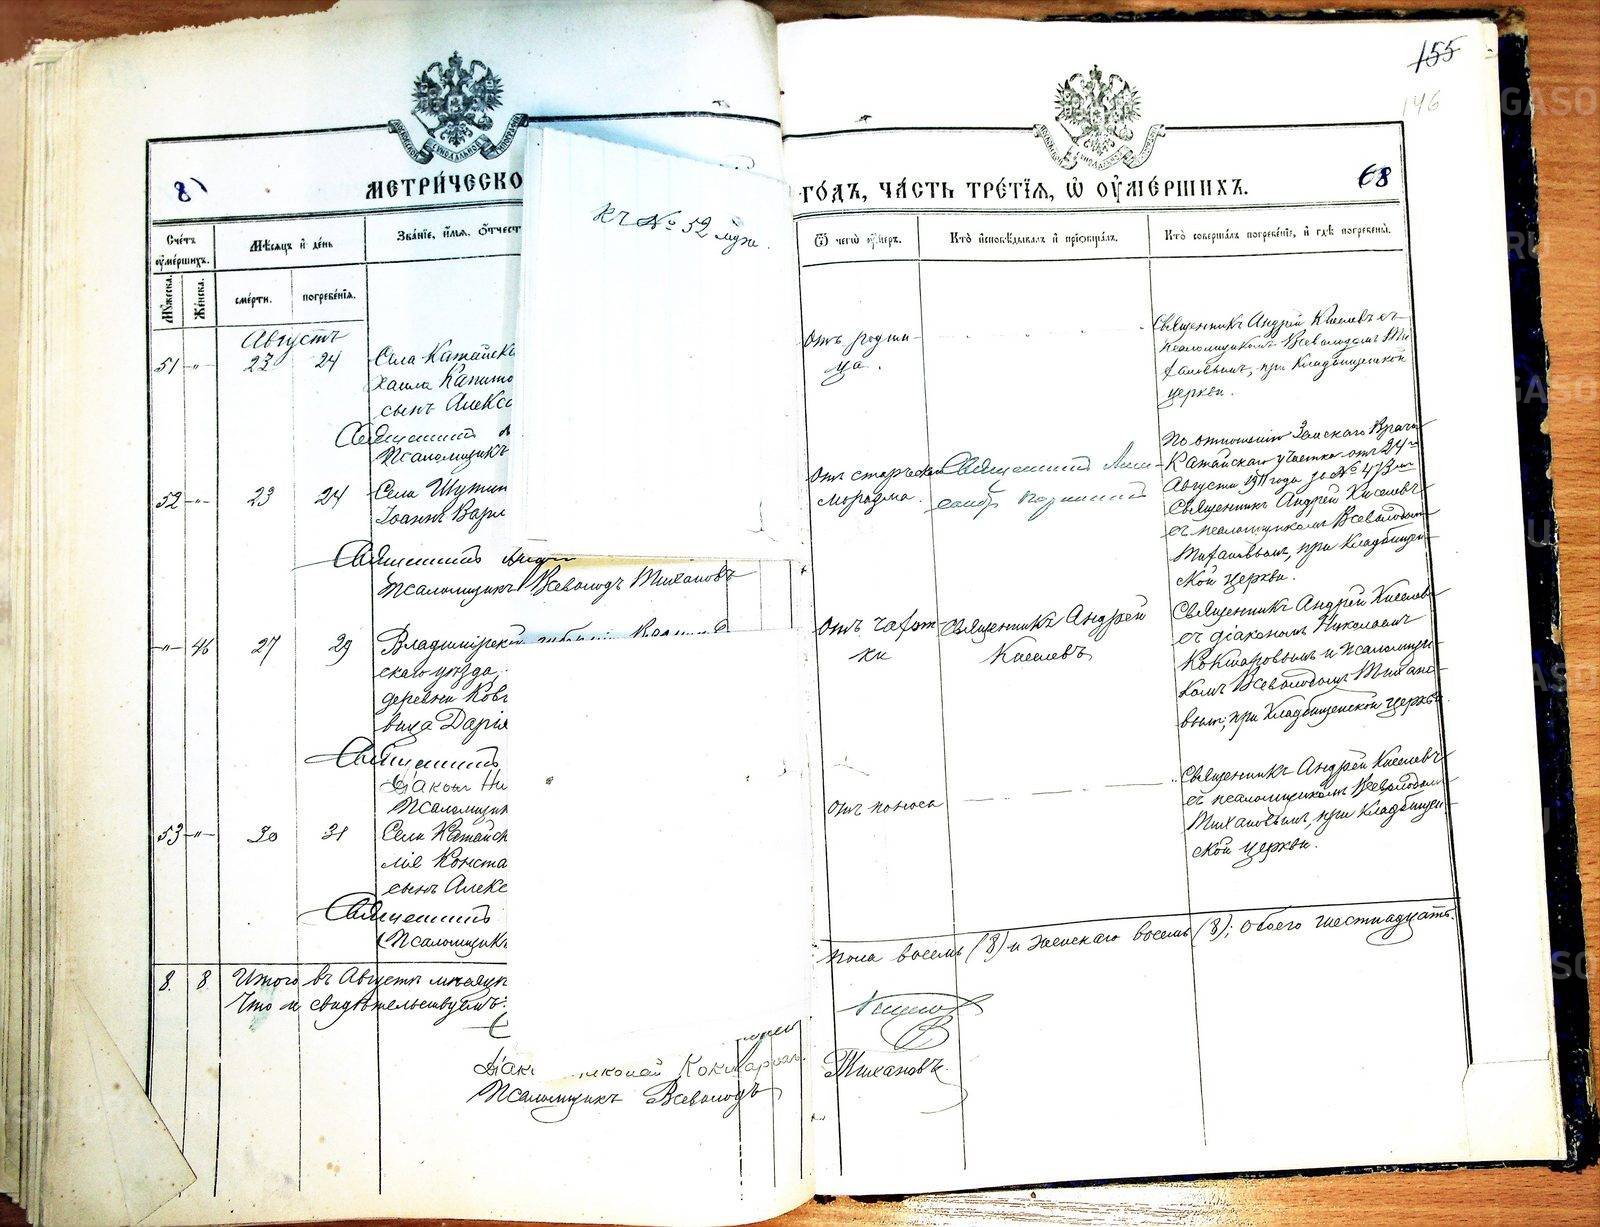 155
146
8)
МЕТРИ́ЧЕСКО
ГО́ДЪ, ЧА́СТЬ ТРЕ́ТІЯ, Ѡ҆ ОУ҆МЕ́РШИХЪ.
68
Сче́тъ оу҆ме́ршихъ.
Мѣ́сяцъ и҆ де́нь
Зва́ніе, и҆́мя, ѻ҆́тчест
Ѿ чегѡ̀ оу҆́меръ.
Кто̀ и҆сповѣ́дывалъ и҆ прїѡбща́лъ.
Кто̀ соверша́лъ погребе́ніе, и҆ гдѣ̀ погребены̀.
Му́жеска.
Же́нска.
сме́рти.
погребе́нія.
къ № 52 муж.
Августъ
51 -"- 23 24
Села Катайск
хаила Капито
сынъ Алекса
Священникъ А
Псаломщикъ
Отъ родим-
ца.
Священникъ Андрей Киселевъ съ
псаломщикомъ Всеволодомъ Ти-
хановымъ, при Кладбищенской
церкви.
52 -"- 23 24
Села Шутин
Іоаннъ Варл
Священникъ Андр
Псаломщикъ Всеволодъ Тихановъ
Отъ старческаго
маразма.
Священникъ
По отношенію Земскаго Врача
Катайскаго участка отъ 24го
Августа 1911 года за № 473м
Священникъ Андрей Киселевъ
съ псаломщикомъ Всеволодомъ
Тихановымъ, при Кладбищен-
ской церкви.
-"- 46 27 29
Владимірской губерніи
скаго уѣзда,
деревни Ков
вица Дарія
Священникъ
Діаконъ Ни
Псаломщик
Отъ чахот
ки
Священникъ Андрей
Киселевъ
Священникъ Андрей Киселевъ
съ діакономъ Николаемъ
Кокшаровымъ и псаломщи-
комъ Всеволодомъ Тихано-
вымъ, при Кладбищенской церкви.
53 -"- 30 31
Села Катайск
лія Конста
сынъ Алекс
Священникъ
Псаломщикъ
Отъ поноса
Священникъ Андрей Киселевъ
съ псаломщикомъ Всеволодомъ
Тихановымъ, при Кладбищен-
ской церкви.
8. 8 Итого въ Августѣ мѣсяцѣ
пола восемь (8) и женскаго восемь (8); обоего шестнадцать.
Что и свидѣтельствуемъ:
Киселевъ
Діак николай Кокшаровъ.
Псаломщикъ Всеволодъ
Тихановъ.
GASO
RU